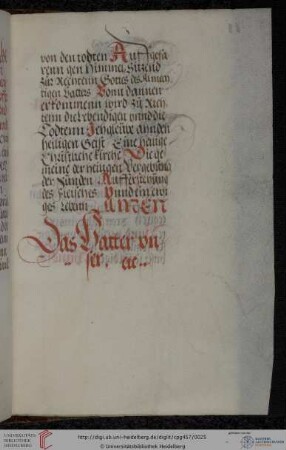 von den todten Auff gefa
renn gen Himmel Sitzend
zur Rechten Gottes des Almech
tigen Vatters Vonn dannen
er kommenn wird zu Rich
tenn die lebendigen vnnd die
Todtenn Ich gleube ann den
heiligen Geist Eine heilige
Christliche kirche Die ge
meine der heiligen Vergebung
der Sunden Aufferstehung
des fleisches Vnnd ein ewi
ges Lebenn AMEN
Das Vatter vn
ser. etc..
http://digi.ub.uni-heidelberg.de/diglit/cpg457/0025
© Universitätsbibliothek Heidelberg
UNIVERSITÄTS-
BIBLIOTHEK
HEIDELBERG